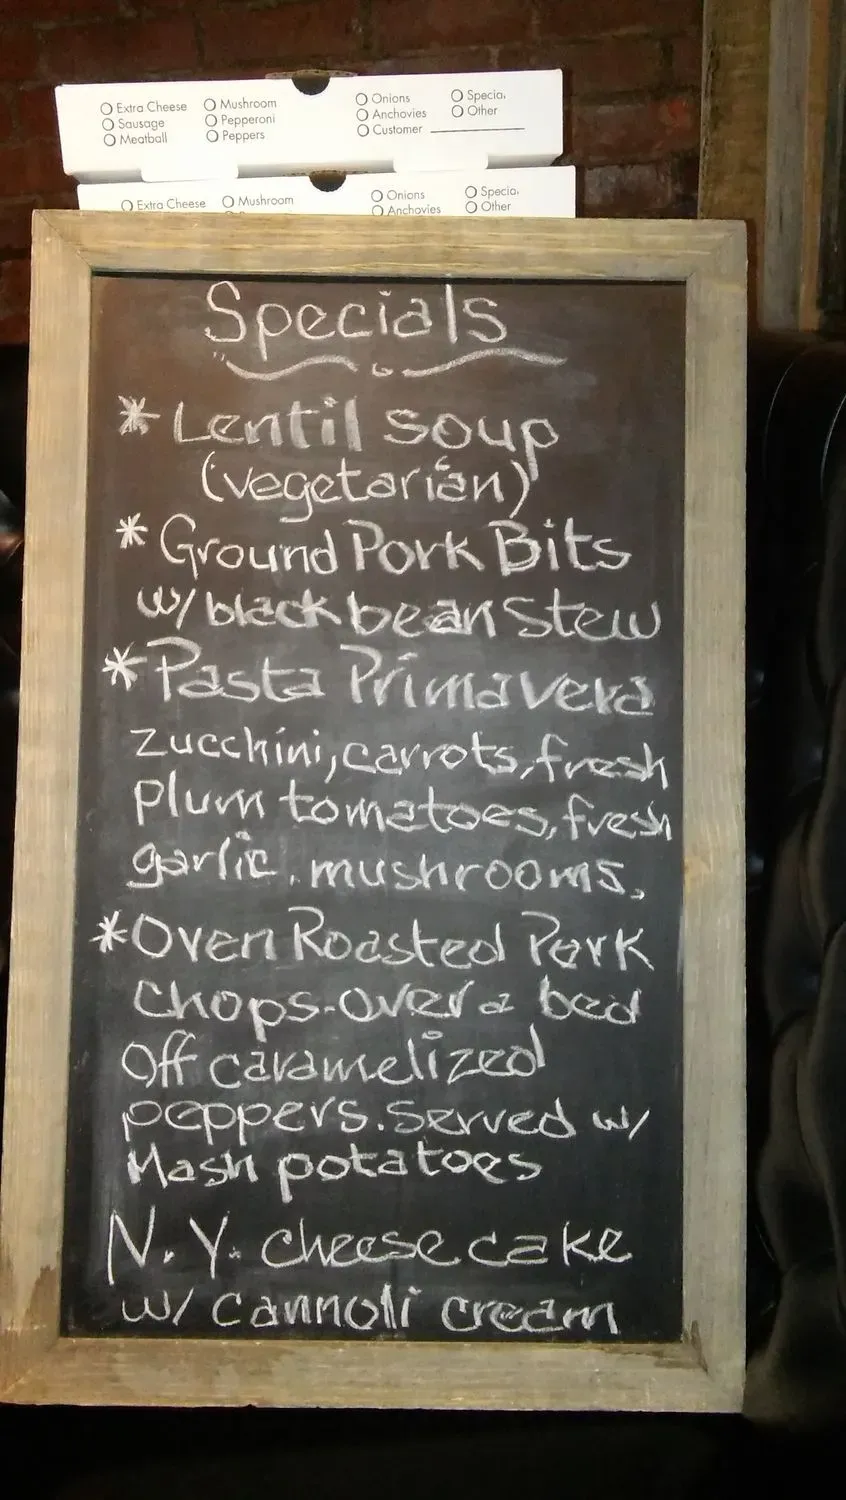 Extra Cheese Mushroom Onions Specia
Sausage Pepperoni Anchovies Other
Meatball Peppers Customer
Extra Cheese Mushroom Onions Specia
Anchovies Other
Specials
* Lentil soup
(vegetarian)
* Ground Pork Bits
w/ black bean Stew
* Pasta Primavera
zucchini, carrots, fresh
plum tomatoes, fresh
garlic, mushrooms,
* Oven Roasted Pork
Chops-over a bed
Off caramelized
peppers. Served w/
Mash potatoes
N.Y. cheese cake
w/ cannoli cream